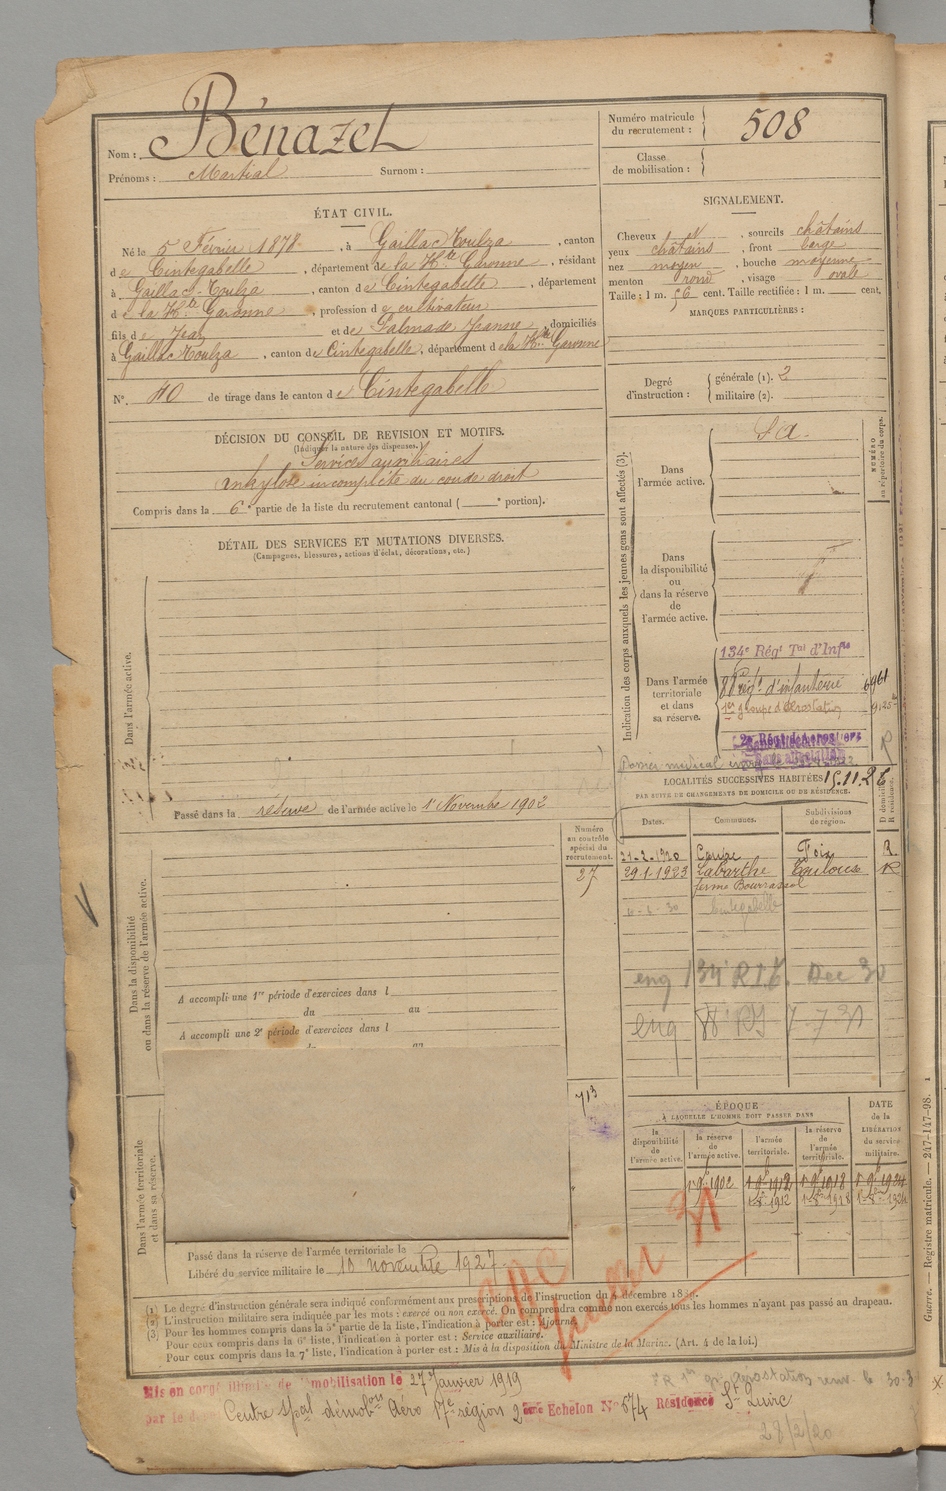 Bénazet
Nom :
Prénoms : Martial Surnom :
Numéro matricule
du recrutement : 508
Classe
de mobilisation :
ÉTAT CIVIL.
Né le 5 Février 1878, à Gaillac-Toulza, canton
de Cintegabelle, département de la Hte Garonne, résidant
à Gaillac-Toulza, canton de Cintegabelle, département
de la Hte Garonne, profession de cultivateur
fils de Jean et de Salmade Jeanne, domiciliés
à Gaillac Toulza, canton de Cintegabelle, département de la Hte Garonne
N°. 40 de tirage dans le canton de Cintegabelle
SIGNALEMENT.
Cheveux , sourcils châtains
yeux châtains, front large
nez moyen, bouche moyenne
menton rond, visage ovale
Taille : 1 m. 56 cent. Taille rectifiée : 1 m. cent.
MARQUES PARTICULIÈRES :
Degré
d'instruction :
générale (1). 2
militaire (2).
DÉCISION DU CONSEIL DE REVISION ET MOTIFS.
(Indiquer la nature des dispenses.)
Services auxiliaires
Ankylose incomplète du coude droit
Compris dans la 6e partie de la liste du recrutement cantonal ( e portion).
DÉTAIL DES SERVICES ET MUTATIONS DIVERSES.
(Campagnes, blessures, actions d'éclat, décorations, etc.)
Dans l'armée active.
Passé dans la réserve de l'armée active le 1r Novembre 1902
Indication des corps auxquels les jeunes gens sont affectés (3).
NUMÉRO
au répertoire du corps.
Dans
l'armée active.
S.a.
Dans
la disponibilité
ou
dans la réserve
de
l'armée active.
Dans l'armée
territoriale
et dans
sa réserve.
134e Régt Tal d'Infie
88e régt d'infanterie
1er groupe d'Aérostation
2e Régt d'Aérostiers
Sans affectation
Dossier médical
15.11.26
LOCALITÉS SUCCESSIVES HABITÉES
PAR SUITE DE CHANGEMENTS DE DOMICILE OU DE RÉSIDENCE.
Dates. Communes. Subdivisions
de région.
D domicile.
R résidence.
21-2-1920 Foix R.
29-1-1923 Labarthe Toulouse R
ferme Bourrassol
Cintegabelle
enq 134e RIT. Dec 30
enq 88e RI 7 7 31
Numéro
au contrôle
spécial du
recrutement.
27
713
Dans la disponibilité
ou dans la réserve de l'armée active.
A accompli une 1re période d'exercices dans l
du au
A accompli une 2e période d'exercices dans l
Dans l'armée territoriale
et dans sa réserve.
ÉPOQUE
À LAQUELLE L'HOMME DOIT PASSER DANS
la
disponibilité
de
l'armée active.
la réserve
de
l'armée active.
l'armée
territoriale.
la réserve
de
l'armée
territoriale.
DATE
de la
LIBÉRATION
du service
militaire.
1r 9bre 1902 1r 9bre 1912 1r 9bre 1918 1r 9bre 1924
Passé dans la réserve de l'armée territoriale le
Libéré du service militaire le 10 novembre 1927
(1) Le degré d'instruction générale sera indiqué conformément aux prescriptions de l'instruction du décembre
(2) L'instruction militaire sera indiquée par les mots : exercé ou non exercé. On comprendra comme non exercés tous les hommes n'ayant pas passé au drapeau.
(3) Pour les hommes compris dans la 5e partie de la liste, l'indication à porter est : Ajourné.
Pour ceux compris dans la 6e liste, l'indication à porter est : Service auxiliaire.
Pour ceux compris dans la 7e liste, l'indication à porter est : Mis à la disposition du Ministre de la Marine. (Art. 4 de la loi.)
Mis en congé illimité de démobilisation le 27 Janvier 1919
par le
Centre spal démobon Aéro 17e région 2ème Echelon N° 574 Résidence St Quirc
28/2/20
Guerre. — Registre matricule. — 247-147-98.